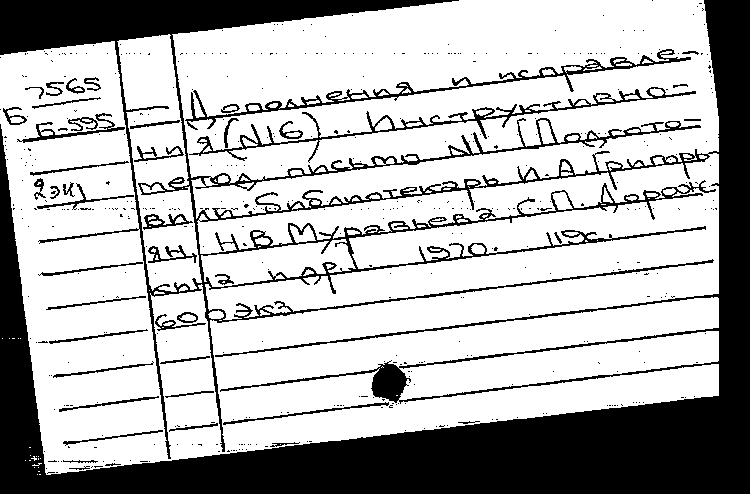 Б 7565
Б-595
2 экз
— Дополнения и исправле-
ния (N16).. Инструктивно-
метод. письмо N1. [Подгото-
вили: библиотекарь И.А.Григорь-
ян, Н.В.Муравьева, С.П.Дорож-
кина и др.]. 1970. 119с.
600экз